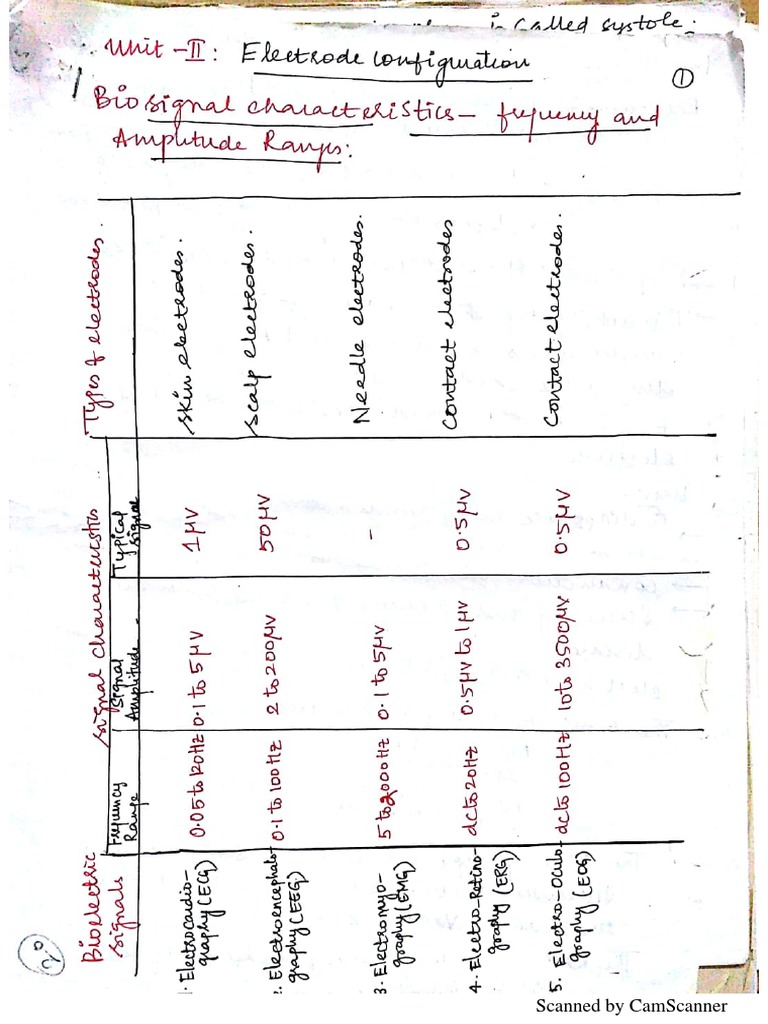 is called systole.
Unit -II: Electrode configuration
①
Biosignal characteristics - frequency and
Amplitude Ranges:
Bioelectric signals
signal characteristics
Types of electrodes.
Frequency Range
Signal Amplitude
Typical signal
1. Electrocardio-graphy (ECG)
0.05 to 120Hz
0.1 to 5μV
1μV
skin electrodes.
2. Electroencephalo-graphy (EEG)
0.1 to 100Hz
2 to 200μV
50μV
scalp electrodes.
3. Electromyo-graphy (EMG)
5 to 2000Hz
0.1 to 5μV
-
Needle electrodes.
4. Electro-Retino-graphy (ERG)
dc to 20Hz
0.5μV to 1μV
0.5μV
contact electrodes
5. Electro-Oculo-graphy (EOG)
dc to 100Hz
10 to 3500μV
0.5μV
contact electrodes.
Scanned by CamScanner